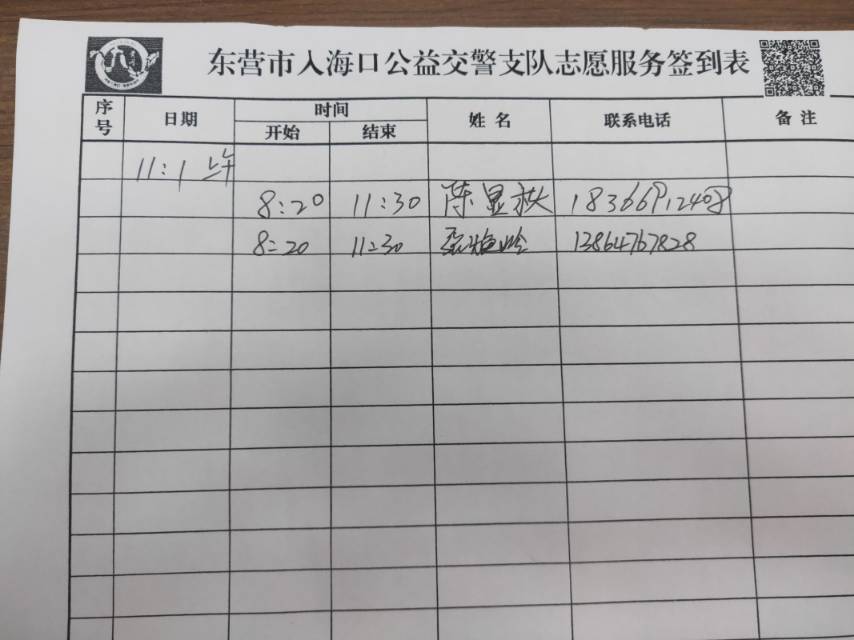 东营市入海口公益交警支队志愿服务签到表
序号 日期 时间 姓名 联系电话 备注
开始 结束
11:1 上午
8:20 11:30 陈显秋
8:20 11:30 13864767828